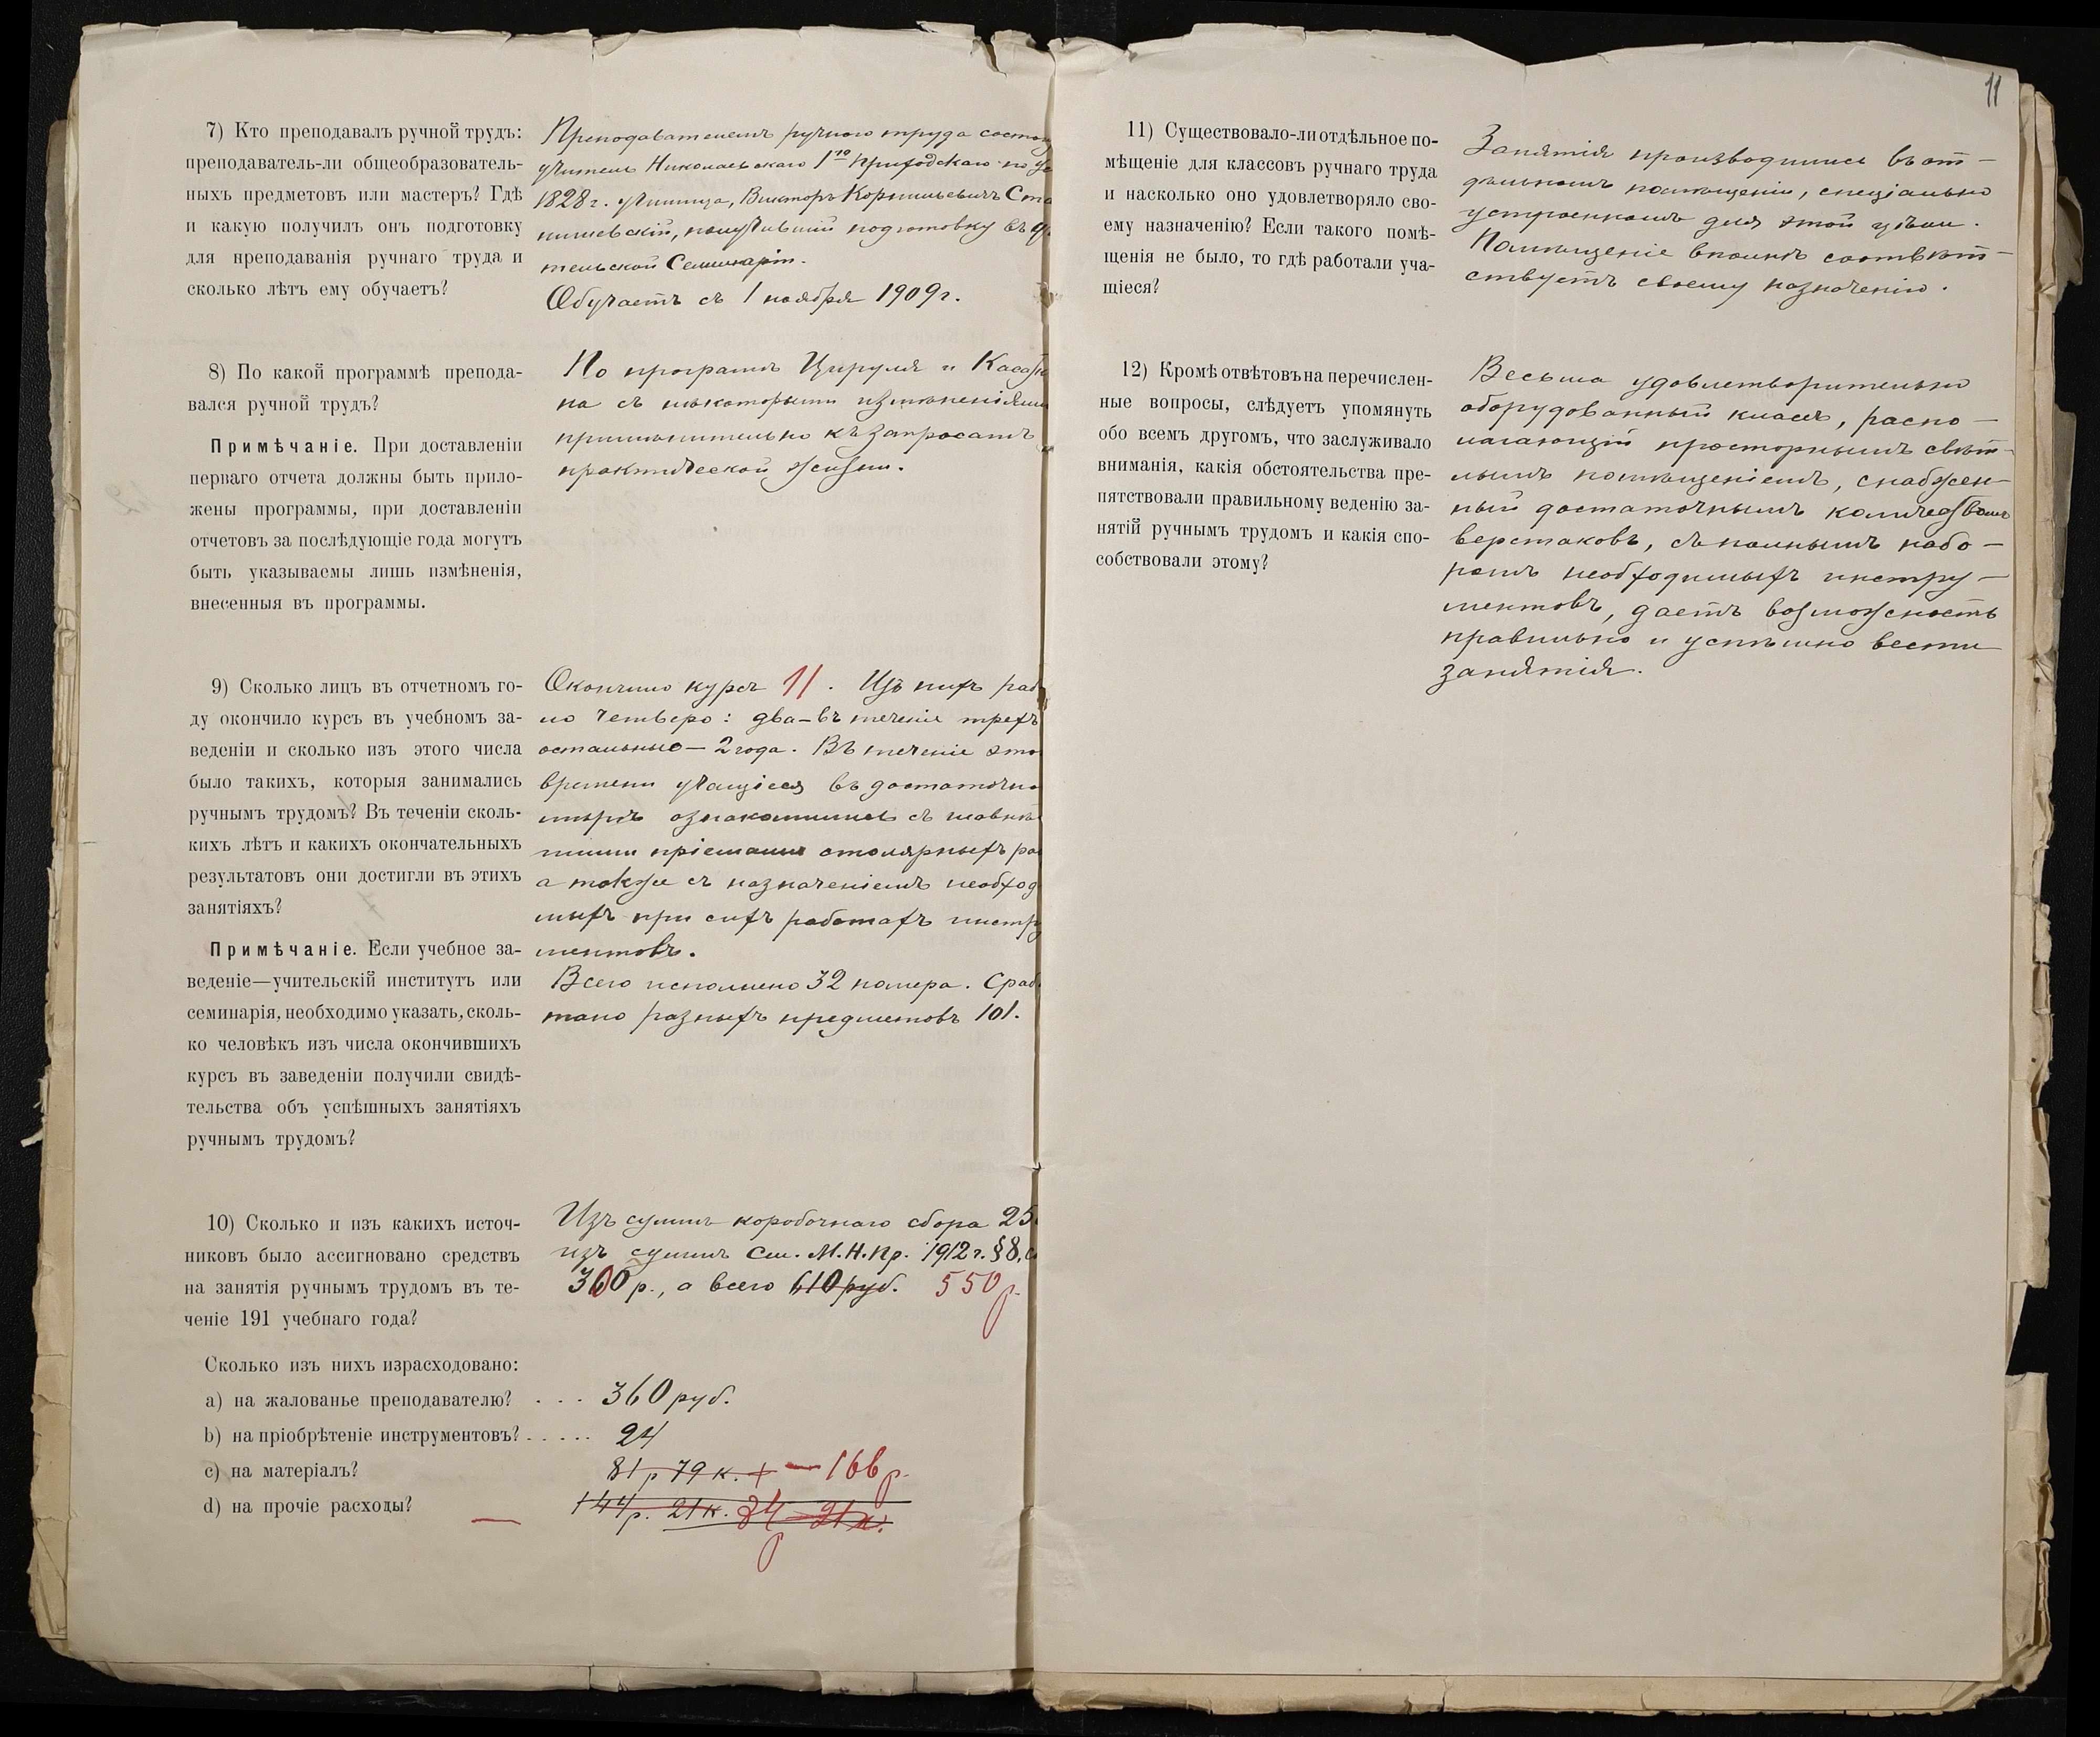 11
7) Кто преподавалъ ручной трудъ:
преподаватель-ли общеобразователь-
ныхъ предметовъ или мастеръ? Гдѣ
и какую получилъ онъ подготовку
для преподаванія ручнаго труда и
сколько лѣтъ ему обучаетъ?
Преподавателемъ ручного труда состои
учитель Николаевскаго 1го приходскаго по у
1828 г. училища, Викторъ Корнильевичъ
получившій подготовку въ
тельской Семинаріи.
Обучаетъ съ 1 ноября 1909 г.
8) По какой программѣ препода-
вался ручной трудъ?
Примѣчаніе. При доставленіи
перваго отчета должны быть прило-
жены программы, при доставленіи
отчетовъ за послѣдующіе года могутъ
быть указываемы лишь измѣненія,
внесенныя въ программы.
По програмѣ Цируля и Касат
на съ нѣкоторыми измѣненіями
примѣнительно къ запросамъ
практической жизни.
9) Сколько лицъ въ отчетномъ го-
ду окончило курсъ въ учебномъ за-
веденіи и сколько изъ этого числа
было такихъ, которыя занимались
ручнымъ трудомъ? Въ теченіи сколь-
кихъ лѣтъ и какихъ окончательныхъ
результатовъ они достигли въ этихъ
занятіяхъ?
Примѣчаніе. Если учебное за-
веденіе—учительскій институтъ или
семинарія, необходимо указать, сколь-
ко человѣкъ изъ числа окончившихъ
курсъ въ заведеніи получили свидѣ-
тельства объ успѣшныхъ занятіяхъ
ручнымъ трудомъ?
Окончило курсъ 11. Изъ нихъ раб
ло четверо: два—въ теченіе трехъ
остальные—2 года. Въ теченіе это
времени учащіеся въ достаточно
мѣрѣ ознакомились съ главнѣ
шими пріемами столярныхъ ра
а также съ назначеніемъ необход
мыхъ при сихъ работахъ инстру
ментовъ.
Всего исполнено 32 номера. Сраб
тано разныхъ предметовъ 101.
10) Сколько и изъ какихъ источ-
никовъ было ассигновано средствъ
на занятія ручнымъ трудомъ въ те-
ченіе 191 учебнаго года?
Изъ суммъ коробочнаго сбора 25
изъ суммъ См. М.Н.Пр. 1912 г. §8,
300 р., а всего 610 руб. 550 р.
Сколько изъ нихъ израсходовано:
a) на жалованье преподавателю? . . . 360 руб.
b) на пріобрѣтеніе инструментовъ? . . . . . 24
c) на матеріалъ? 81 р 79 к. + — 166 р.
d) на прочіе расходы? 144 р. 21 к. 84 р 21 к.
11) Существовало-ли отдѣльное по-
мѣщеніе для классовъ ручнаго труда
и насколько оно удовлетворяло сво-
ему назначенію? Если такого помѣ-
щенія не было, то гдѣ работали уча-
щіеся?
Занятія производились въ от-
дѣльномъ помѣщеніи, спеціально
устроенномъ для этой цѣли.
Помѣщеніе вполнѣ соотвѣт-
ствуетъ своему назначенію.
12) Кромѣ отвѣтовъ на перечислен-
ные вопросы, слѣдуетъ упомянуть
обо всемъ другомъ, что заслуживало
вниманія, какія обстоятельства пре-
пятствовали правильному веденію за-
нятій ручнымъ трудомъ и какія спо-
собствовали этому?
Весьма удовлетворительно
оборудованный классъ, распо-
лагающій просторнымъ свѣт-
лымъ помѣщеніемъ, снабжен-
ный достаточнымъ количествомъ
верстаковъ, съ полнымъ набо-
ромъ необходимыхъ инстру-
ментовъ, даетъ возможность
правильно и успѣшно вести
занятія.